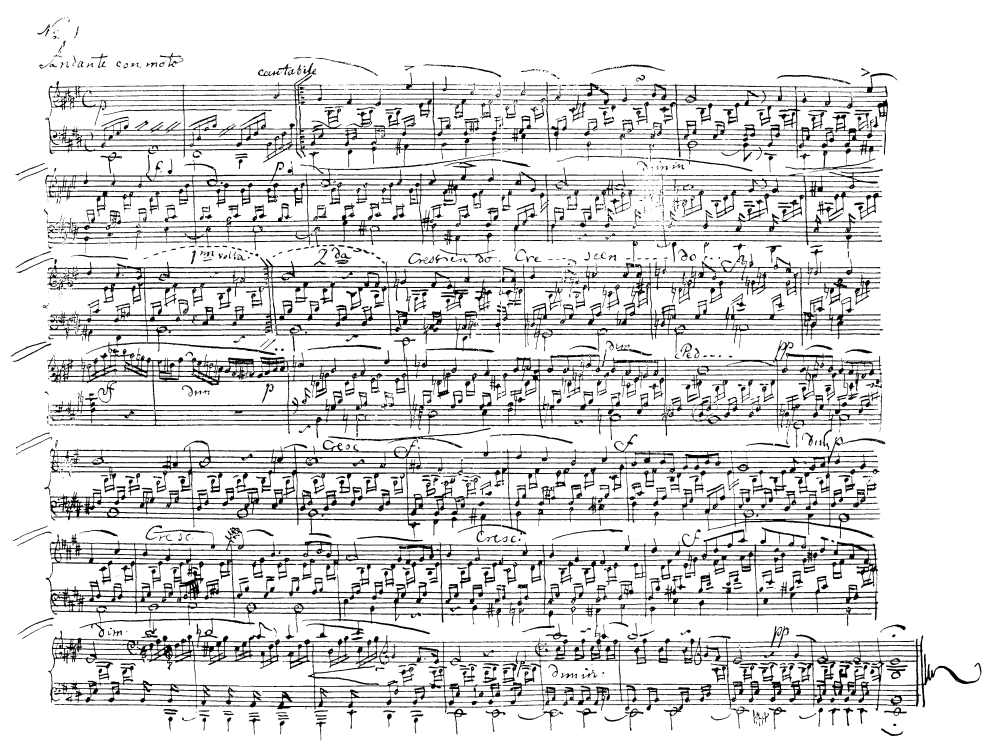 No. 1
Andante con moto
cantabile
p
f p
dimin
1ma volta 2da Crescendo. Cre scen do
ff dim p dim Ped.... pp
Cresc f f dim p
Cresc. Cresc. f
dim: pp
dimin: